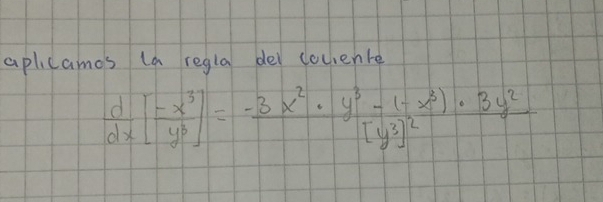 aplicamos la regla del cociente
d/dx [-x³/y³] = (-3x² · y³ - (-x³) · 3y²)/[y³]²